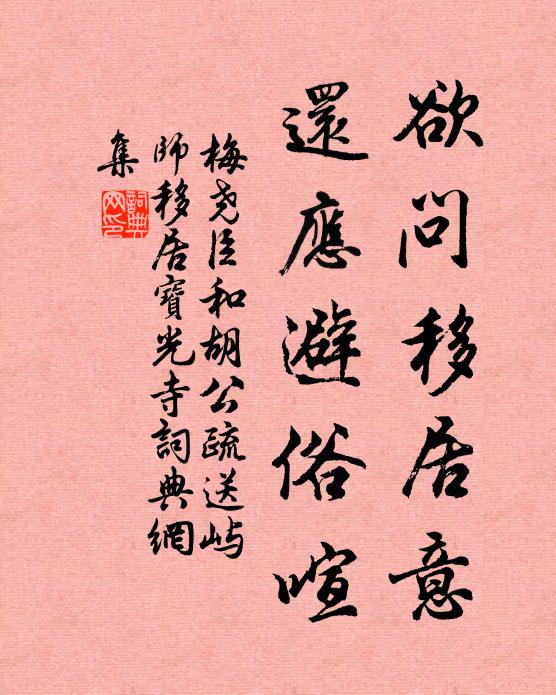 欲問移居意
還應避俗喧
梅堯臣和胡公疏送屿
師移居寶光寺詞典網
集
詞典
网印